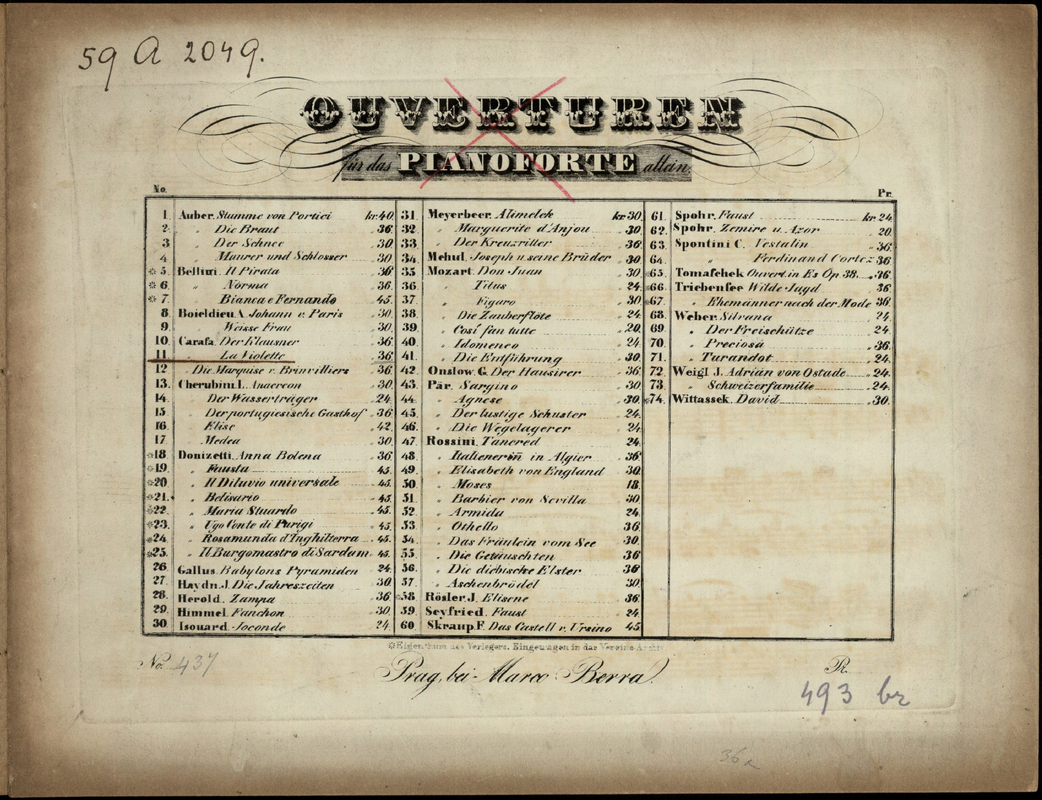 59 A 2049.
OUVERTUREN
für das PIANOFORTE allein.
No. Pr.
1. Auber. Stumme von Portici kr. 40.
2. " Die Braut 36.
3 " Der Schnee 30.
4 " Maurer und Schlosser 30.
※ 5. Bellini. Il Pirata 36
※ 6. " Norma 36.
※ 7. " Bianca e Fernando 45.
8. Boieldieu A. Johann v. Paris 30.
9. " Weisse Frau 30.
10. Carafa. Der Klausner 36.
11. " La Violette 36.
12 " Die Marquise v. Brinvilliers 36.
13. Cherubini L. Anacreon 30.
14. " Der Wasserträger 24.
15. " Der portugiesische Gasthof 36.
16. " Elise 42.
17. " Medea 30.
※18. Donizetti. Anna Bolena 36.
※19. " Fausta 45.
※20. " Il Diluvio universale 45.
※21. " Belisario 45.
※22. " Maria Stuardo 45.
※23. " Ugo Conte di Parigi 45.
※24. " Rosamunda d'Inghilterra 45.
※25. " Il Burgomastro di Sardam 45.
26. Gallus. Babylons Pyramiden 24.
27. Haydn J. Die Jahreszeiten 30.
28. Herold. Zampa 36.
29. Himmel. Fanchon 30.
30. Isouard. Joconde 24.
31. Meyerbeer. Alimelek kr. 30.
32. " Marguerite d'Anjou 30.
33. " Der Kreuzritter 36.
34. Mehul. Joseph u. seine Brüder 30.
35. Mozart. Don Juan 30.
36 " Titus 24.
37. " Figaro 30.
38. " Die Zauberflöte 24.
39. " Così fan tutte 20.
40. " Idomeneo 24.
41. " Die Entführung 30.
42. Onslow G. Der Hausirer 36.
43. Pär. Sargino 30.
44. " Agnese 30.
45. " Der lustige Schuster 24.
46. " Die Wegelagerer 24.
47. Rossini. Tancred 24.
48. " Italienerin in Algier 36.
49. " Elisabeth von England 30.
50. " Moses 18.
51. " Barbier von Sevilla 30.
52. " Armida 24.
53. " Othello 36.
54. " Das Fräulein vom See 30.
55. " Die Getäuschten 36.
56. " Die diebische Elster 36.
57. " Aschenbrödel 30.
※58 Rösler J. Elisene 36.
59. Seyfried. Faust 24
60. Skraup F. Das Castell v. Ursino 45
61. Spohr. Faust kr. 24.
62. Spohr. Zemire u. Azor 20.
63. Spontini C. Vestalin 36.
64. " Ferdinand Cortez 36
※65. Tomaschek Ouvert. in Es Op 38. 36.
66. Triebensee Wilde Jagd 36
※67. " Ehemänner nach der Mode 36.
68. Weber. Silvana 24.
69. " Der Freischütze 24.
70. " Preciosa 36.
71. " Turandot 24.
72. Weigl J. Adrian von Ostade 24.
73. " Schweizerfamilie 24.
※74. Wittassek. David 30.
Eigenthum des Verlegers. Eingetragen in das Vereins-Archiv
No. 437
Prag, bei Marco Berra.
Pr.
493 br
36